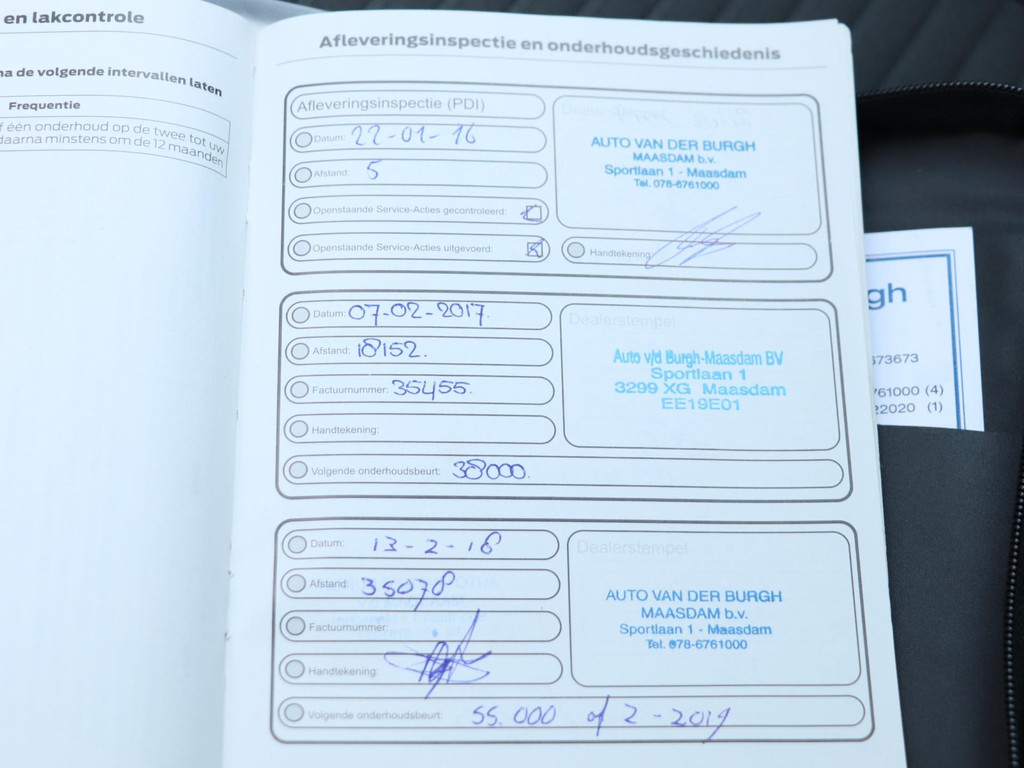 en lakcontrole
na de volgende intervallen laten
Frequentie
f één onderhoud op de twee tot uw
daarna minstens om de 12 maanden
Afleveringsinspectie en onderhoudsgeschiedenis
Afleveringsinspectie (PDI)
Datum: 22-01-16
Afstand: 5
Openstaande Service-Acties gecontroleerd:
Openstaande Service-Acties uitgevoerd:
AUTO VAN DER BURGH
MAASDAM b.v.
Sportlaan 1 - Maasdam
Tel. 078-6761000
Handtekening:
Datum: 07-02-2017.
Afstand: 18152.
Factuurnummer: 35455.
Handtekening:
Volgende onderhoudsbeurt: 38000.
Dealerstempel
Auto v/d Burgh-Maasdam BV
Sportlaan 1
3299 XG Maasdam
EE19E01
Datum: 13-2-18
Afstand: 35078
Factuurnummer:
Handtekening:
Volgende onderhoudsbeurt: 55.000 of 2-2019
Dealerstempel
AUTO VAN DER BURGH
MAASDAM b.v.
Sportlaan 1 - Maasdam
Tel. 078-6761000
gh
673673
761000 (4)
22020 (1)